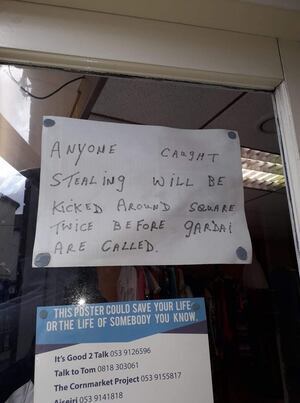 ANYONE CAUGHT
STEALING WILL BE
KICKED AROUND SQUARE
TWICE BEFORE GARDAI
ARE CALLED.
THIS POSTER COULD SAVE YOUR LIFE
OR THE LIFE OF SOMEBODY YOU KNOW.
It's Good 2 Talk 053 9126596
Talk to Tom 0818 303061
The Cornmarket Project 053 9155817
Aiseiri 053 9141818